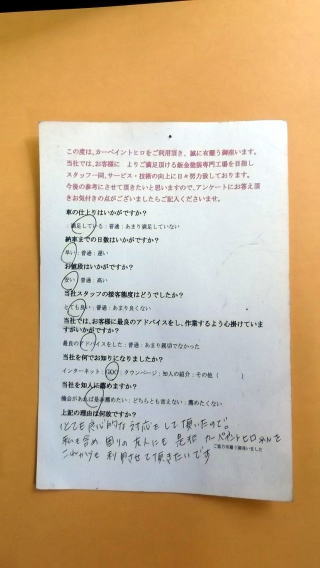 この度は、カーペイントヒロをご利用頂き、誠に有難う御座います。
当社では、お客様に　よりご満足頂ける鈑金塗装専門工場を目指し
スタッフ一同、サービス・技術の向上に日々努力致しております。
今後の参考にさせて頂きたいと思いますので、アンケートにお答え頂
きお気付きの点がございましたらご記入くださいませ。
車の仕上りはいかがですか？
満足している：普通：あまり満足していない
納車までの日数はいかがですか？
早い：普通：遅い
お値段はいかがですか？
安い：普通：高い
当社スタッフの接客態度はどうでしたか？
とても良い：普通：あまり良くない
当社では、お客様に最良のアドバイスをし、作業するよう心掛けていま
すがいかがですか？
最良のアドバイスをした：普通：あまり親切でなかった
当社を何でお知りになりましたか？
インターネット：GOO：タウンページ：知人の紹介：その他（　　　）
当社を知人に薦めますか？
機会があれば是非薦めたい：どちらとも言えない：薦めたくない
上記の理由は何故ですか？
とても良心的な対応をして頂いたので。
私も含め 周りの友人にも 是非 カーペイントヒロさんを
ご協力有難う御座いました
これからも 利用させて頂きたいです